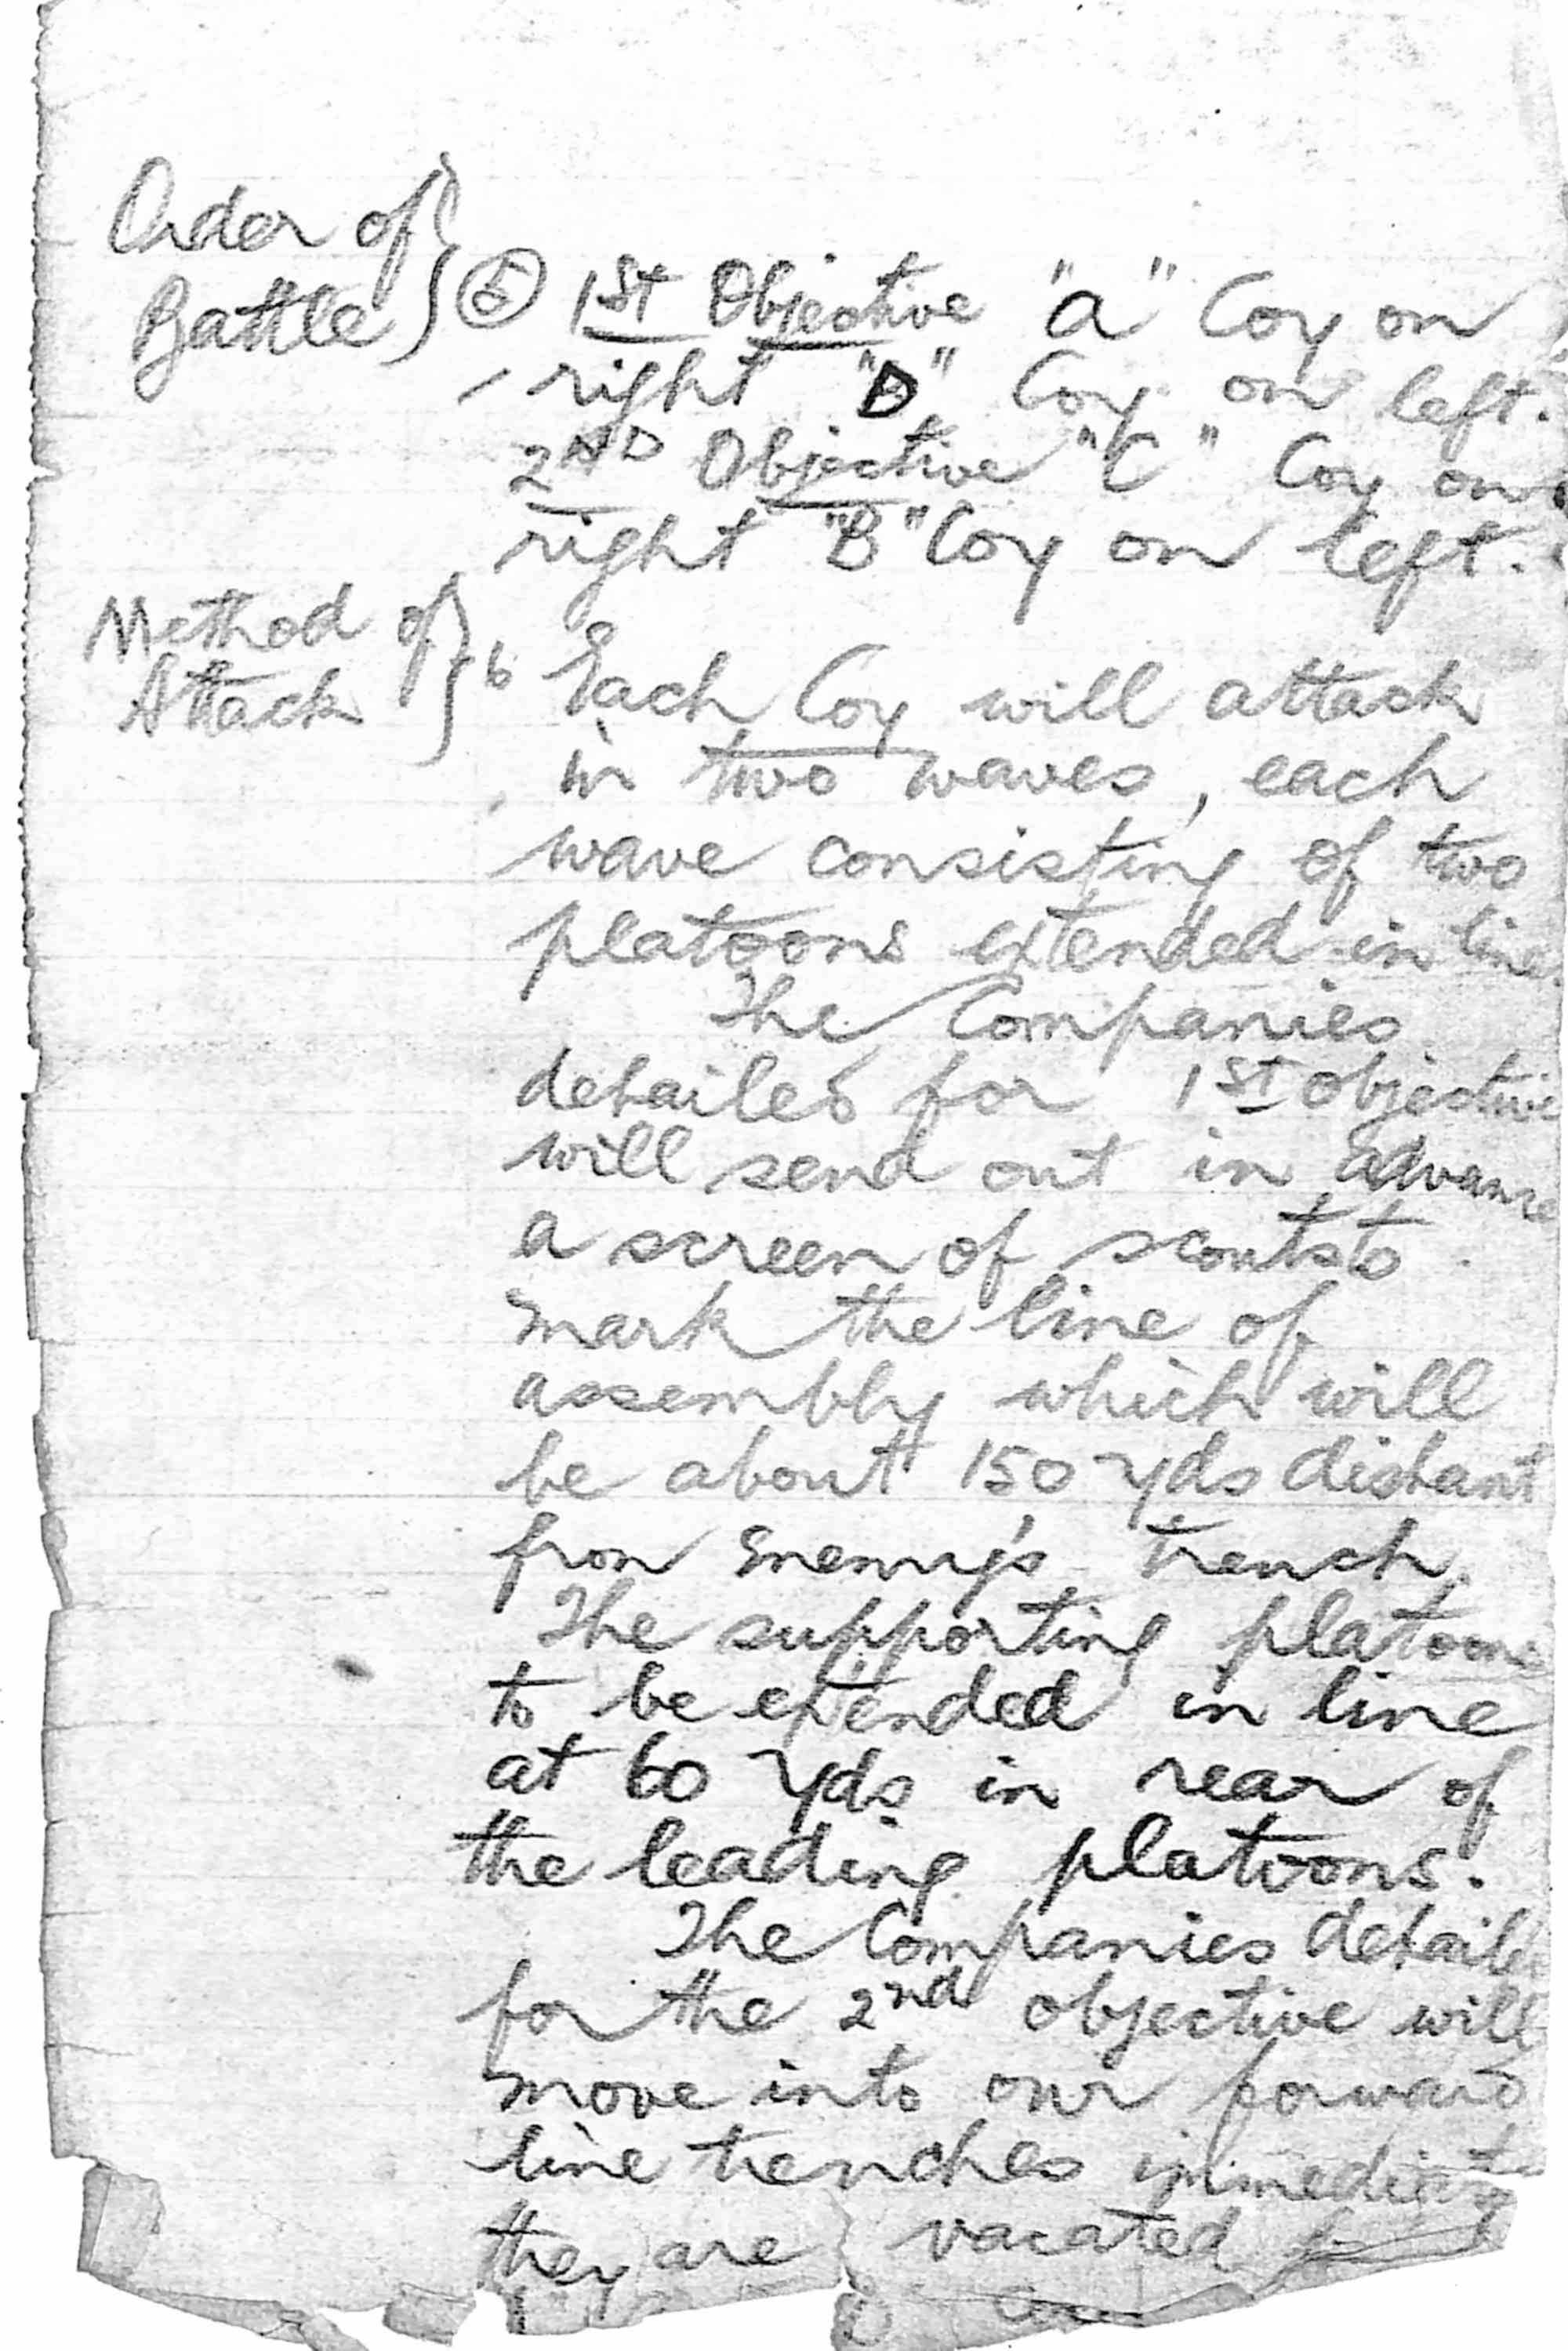 Order of
Battle } ⑤ 1st Objective "A" Coy on
right "D" Coy on left.
2ND Objective "C" Coy on
right "B" Coy on left.
Method of
Attack } 6 Each Coy will attack
in two waves, each
wave consisting of two
platoons extended in line.
The Companies
detailed for 1st objective
will send out in advance
a screen of scouts to
mark the line of
assembly which will
be about 150 yds distant
from Enemy's trench.
The supporting platoons
to be extended in line
at 60 yds in rear of
the leading platoons.
The Companies detailed
for the 2nd objective will
move into our forward
line trenches immediately
they are vacated